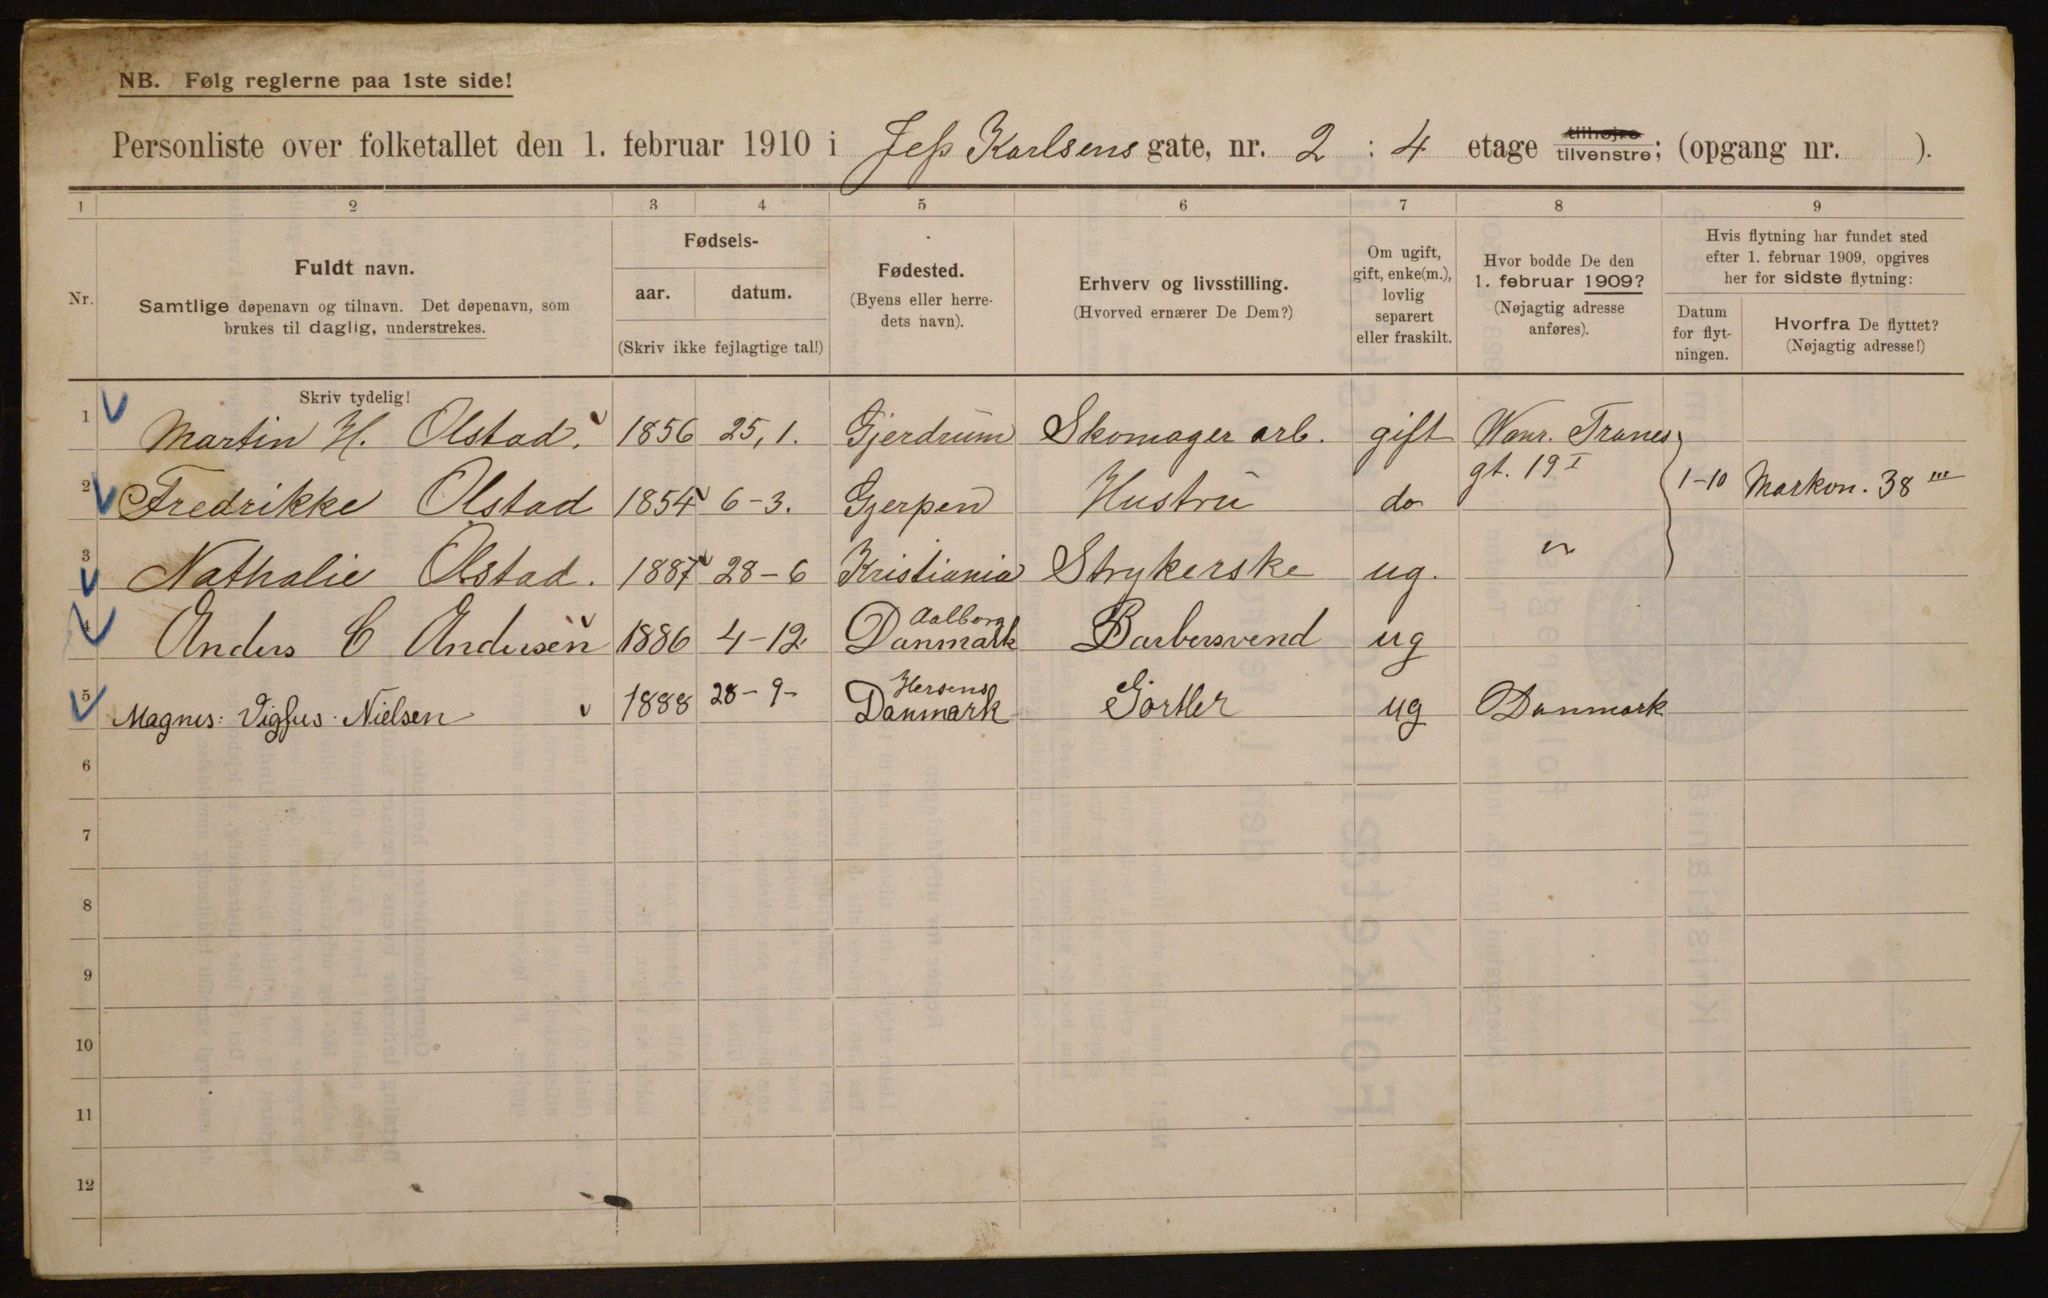 NB. Følg reglerne paa 1ste side!
Personliste over folketallet den 1. februar 1910 i Jess Karlsens gate, nr. 2 : 4 etage tilhøjre tilvenstre; (opgang nr. ).
1 2 3 4 5 6 7 8 9
Nr.
Fuldt navn.
Samtlige døpenavn og tilnavn. Det døpenavn, som
brukes til daglig, understrekes.
Fødsels-
aar. datum.
(Skriv ikke fejlagtige tal!)
Fødested.
(Byens eller herre-
dets navn).
Erhverv og livsstilling.
(Hvorved ernærer De Dem?)
Om ugift,
gift, enke(m.),
lovlig
separert
eller fraskilt.
Hvor bodde De den
1. februar 1909?
(Nøjagtig adresse
anføres).
Hvis flytning har fundet sted
efter 1. februar 1909, opgives
her for sidste flytning:
Datum
for flyt-
ningen.
Hvorfra De flyttet?
(Nøjagtig adresse!)
Skriv tydelig!
1 Martin H. Olstad. 1856 25,1. Gjerdrum Skomager arb. gift Wanr. Tranes
gt. 19 I
2 Fredrikke Olstad 1854 6-3. Gjerpen Hustru do 1-10 Markvn. 38 III
3 Nathalie Olstad. 1887 28-6 Kristiania Strykerske ug. "
4 Anders C Andersen 1886 4-12 Aalborg
Danmark Barbersvend ug
5 Magnus: Vigfus Nielsen 1888 28-9- Hersens
Danmark Gørtler ug Danmark
6
7
8
9
10
11
12